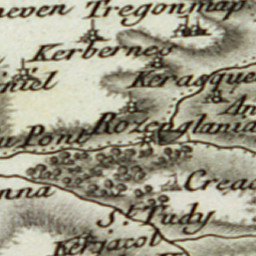 neven Tregonmap
Kerbernes
Kerasque
niel
An
Rozenglania
u Pont
Creac
nna
St. Tudy
Kerjacob